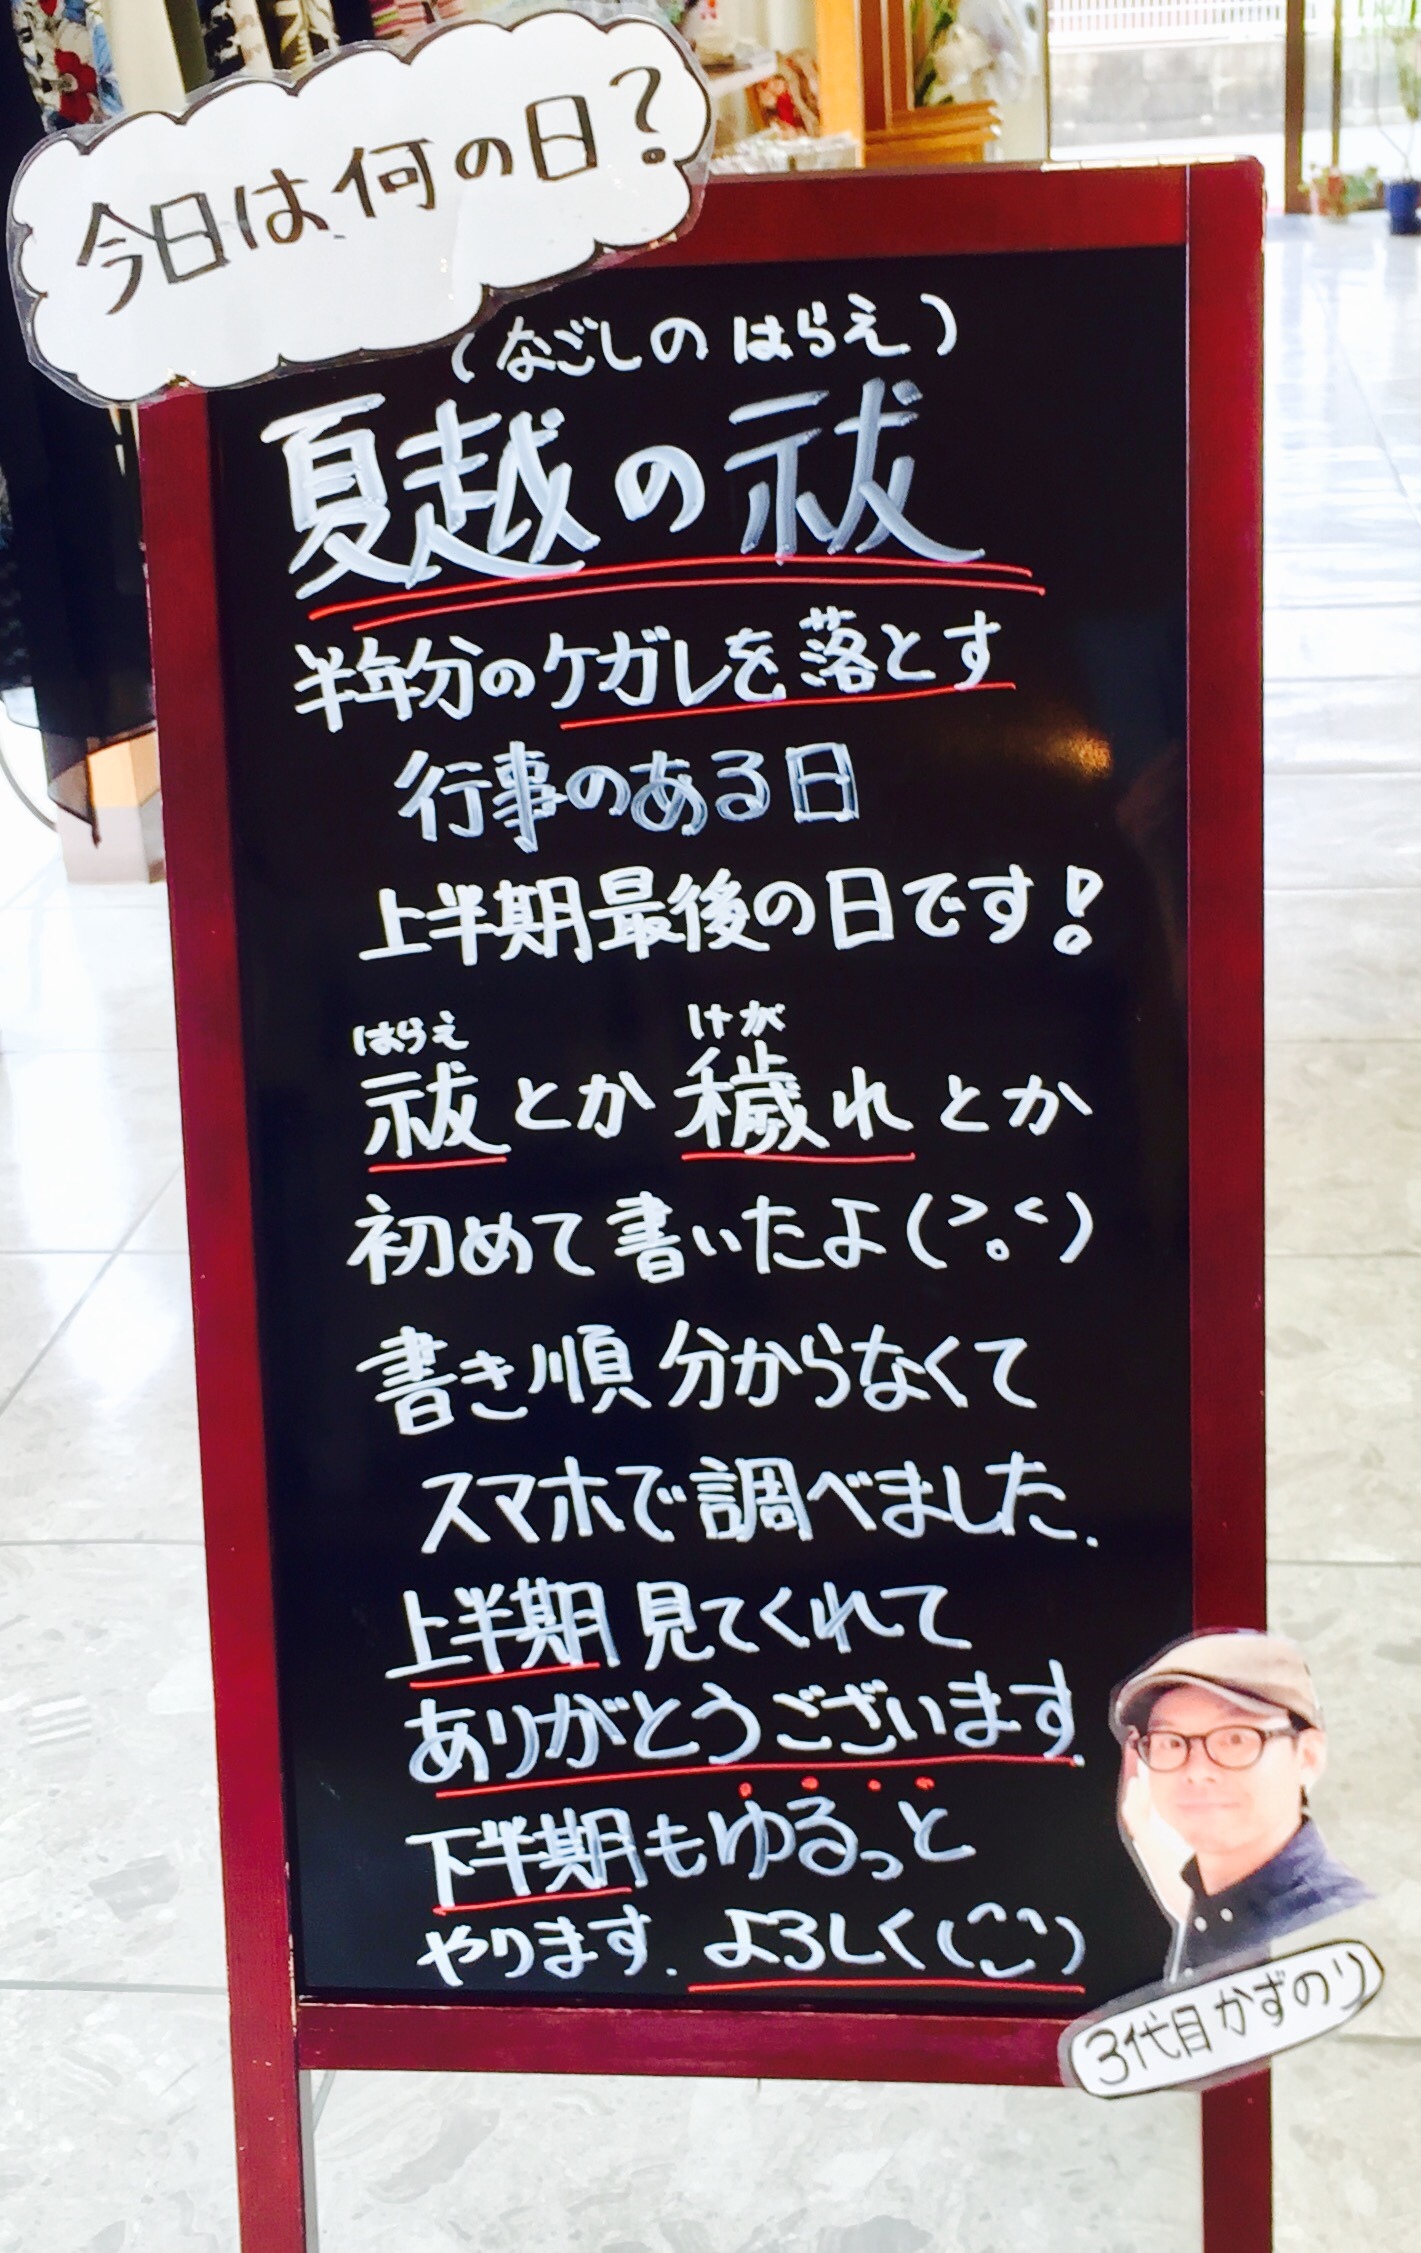 今日は何の日?
(なごしの はらえ)
夏越の祓
半年分のケガレを落とす
行事のある日
上半期最後の日です!
はらえ けが
祓とか 穢れとか
初めて書いたよ(>。<)
書き順 分からなくて
スマホで調べました.
上半期 見てくれて
ありがとうございます.
下半期もゆるっと
やります. よろしく(^‿^)
3代目 かずのり